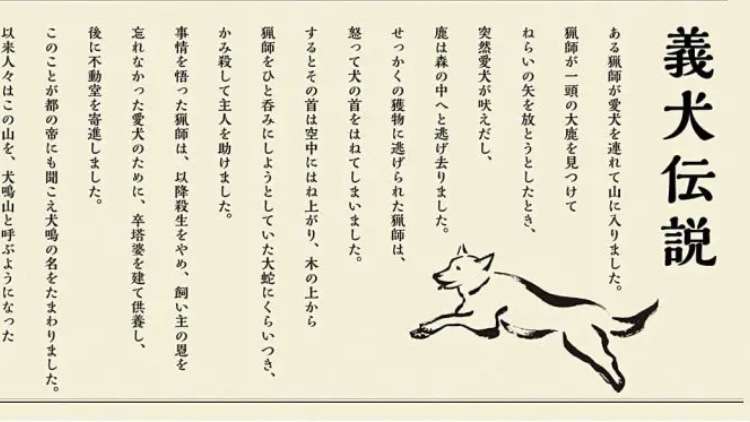 義犬伝説
ある猟師が愛犬を連れて山に入りました。
猟師が一頭の大鹿を見つけて
ねらいの矢を放とうとしたとき、
突然愛犬が吠えだし、
鹿は森の中へと逃げ去りました。
せっかくの獲物に逃げられた猟師は、
怒って犬の首をはねてしまいました。
するとその首は空中にはね上がり、木の上から
猟師をひと呑みにしようとしていた大蛇にくらいつき、
かみ殺して主人を助けました。
事情を悟った猟師は、以降殺生をやめ、飼い主の恩を
忘れなかった愛犬のために、卒塔婆を建て供養し、
後に不動堂を寄進しました。
このことが都の帝にも聞こえ犬鳴の名をたまわりました。
以来人々はこの山を、犬鳴山と呼ぶようになった